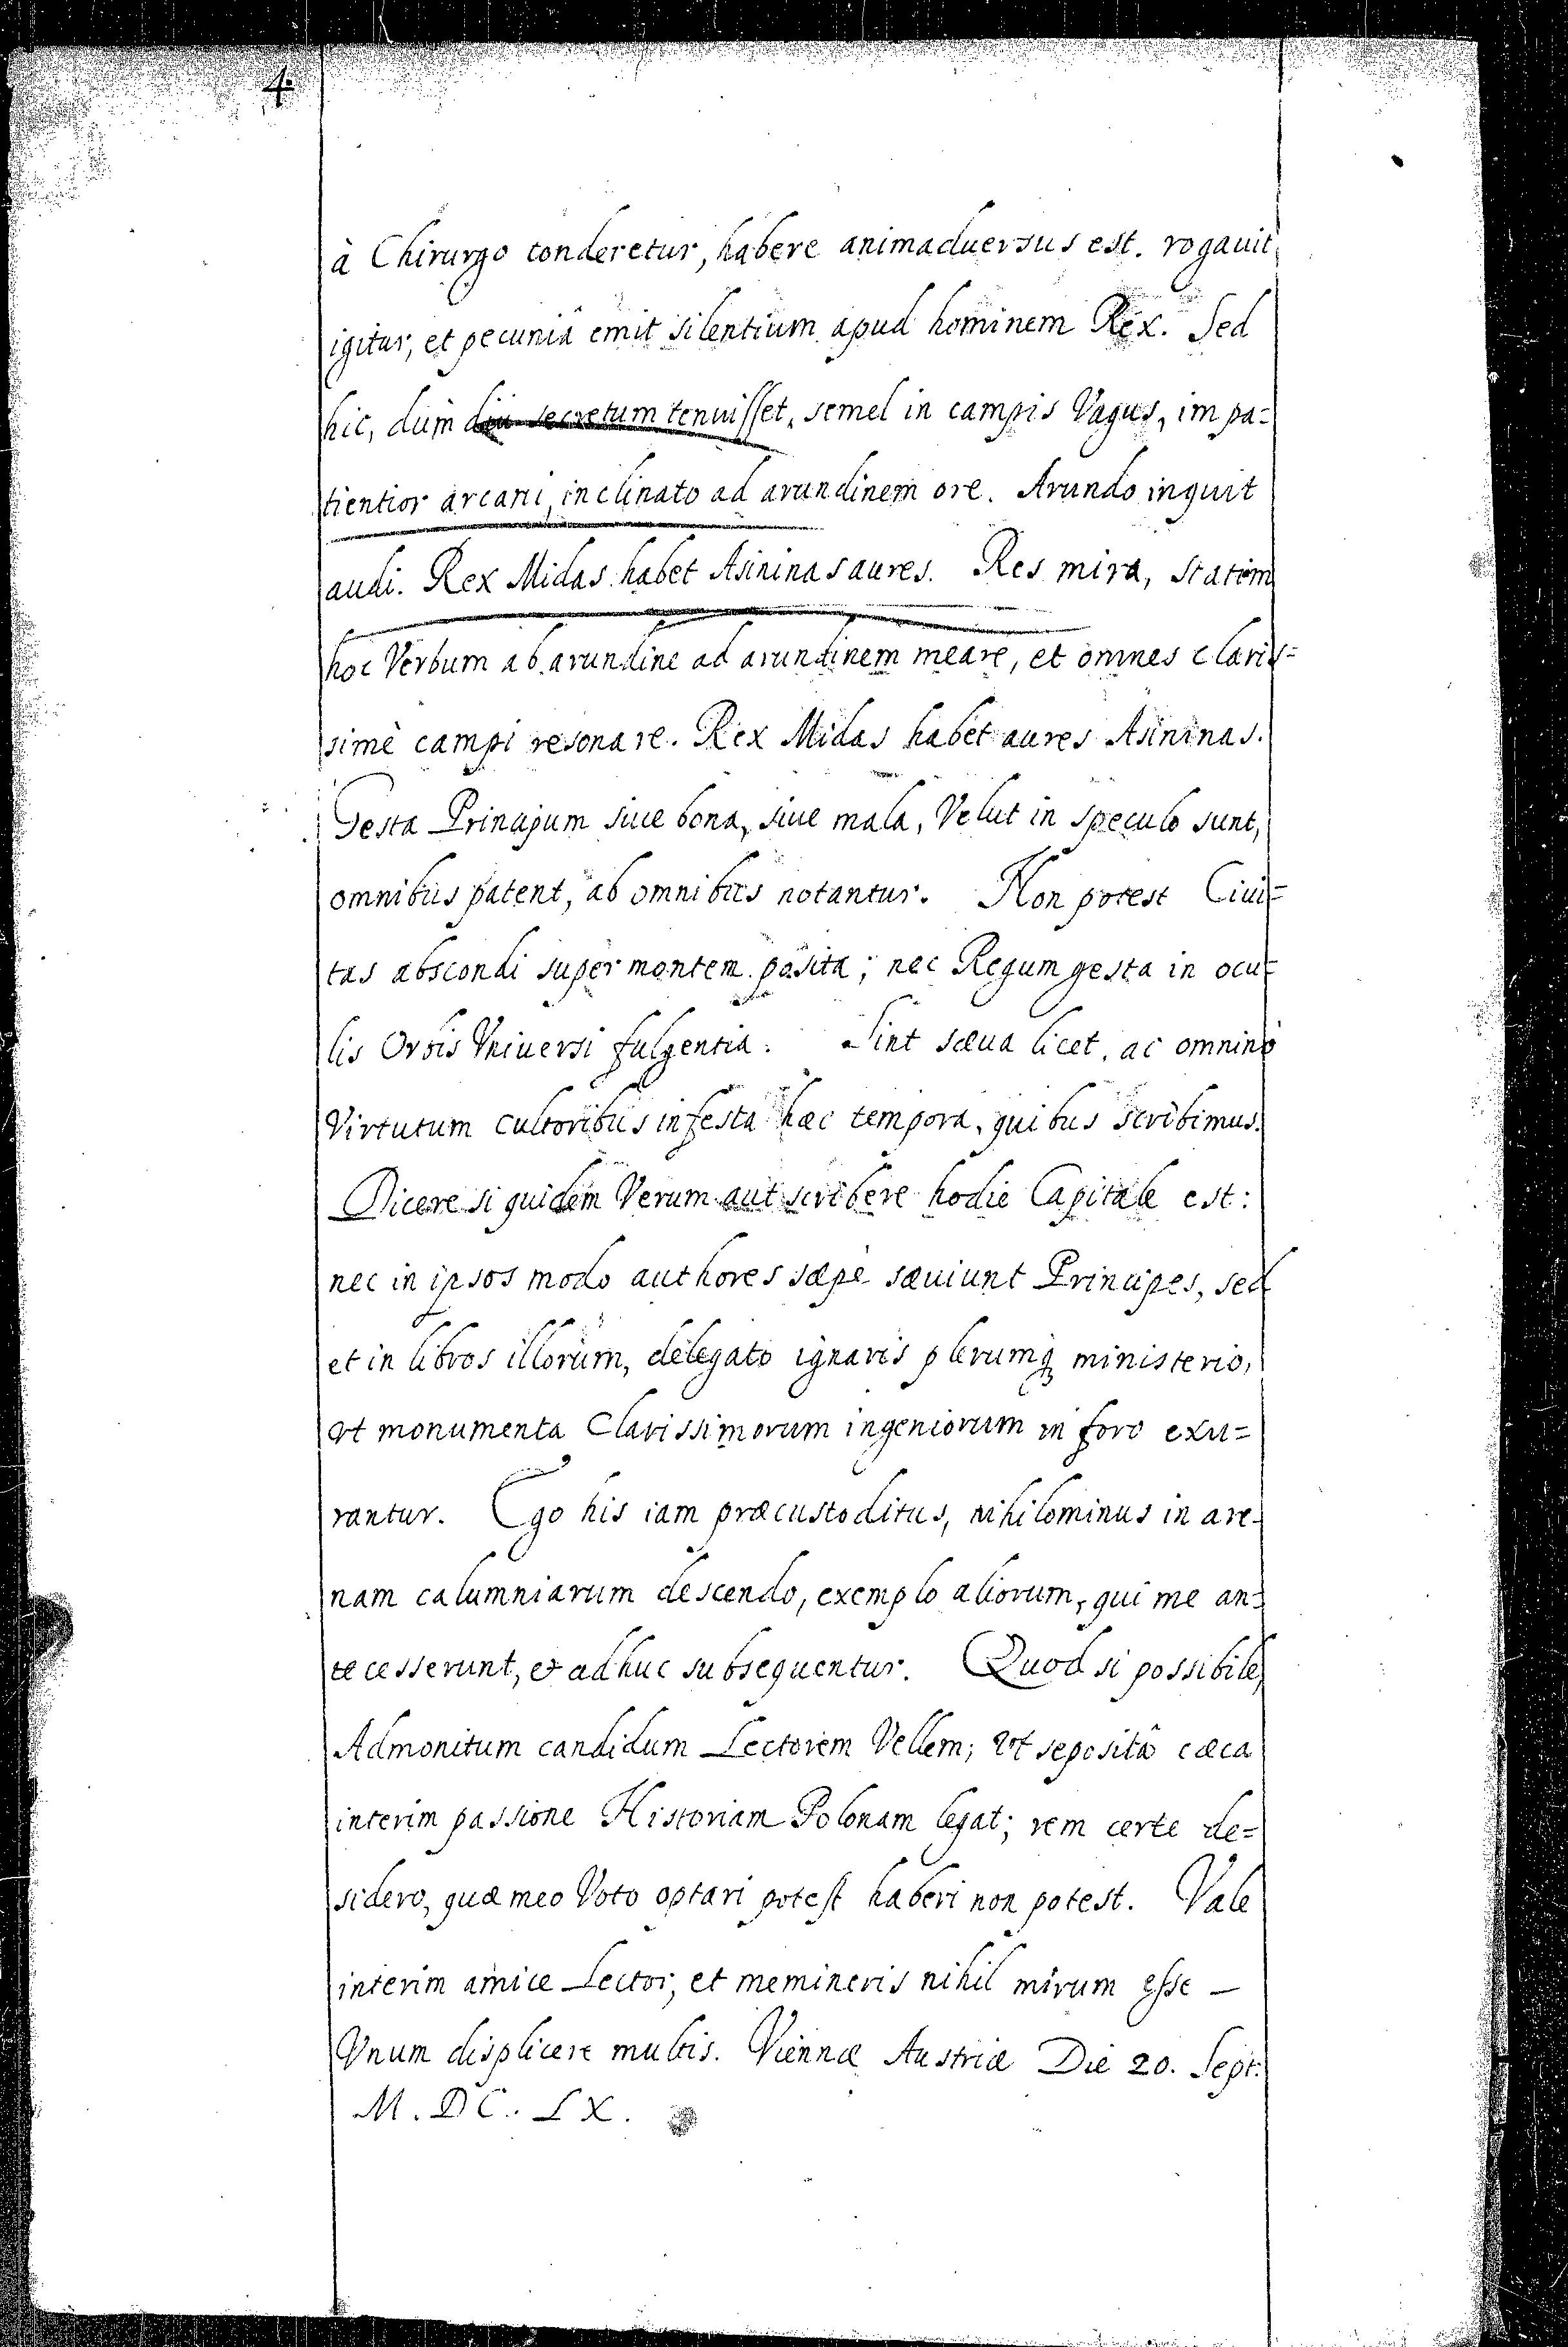 4.
à Chirurgo tonderetur, habere animaduersus est. rogauit
igitur, et pecuniâ emit silentium apud hominem Rex. Sed
hic, dum diu secretum tenuisset, semel in campis Vagus, impa=
tientior arcani, inclinato ad arundinem ore. Arundo inquit
audi. Rex Midas habet Asininas aures. Res mira, statim
hoc Verbum ab arundine ad arundinem meare, et omnes claris=
simè campi resonare. Rex Midas habet aures Asininas.
Gesta Principum siue bona, siue mala, Velut in speculo sunt,
omnibus patent, ab omnibus notantur. Non potest Ciui=
tas abscondi super montem posita; nec Regum gesta in ocu=
lis Orbis Vniuersi fulgentia. Sint sæua licet, ac omninò
Virtutum cultoribus infesta hæc tempora, quibus scribimus.
Dicere siquidem Verum aut scribere hodie Capitale est:
nec in ipsos modo authores sæpè sæuiunt Principes, sed
et in libros illorum, delegato ignaris plerumq ministerio,
vt monumenta Clarissimorum ingeniorum in foro exu=
rantur. Ego his iam præcustoditus, nihilominus in are-
nam calumniarum descendo, exemplo aliorum, qui me an=
tecesserunt, et adhuc subsequentur. Quod si possibile,
Admonitum candidum Lectorem Vellem; Vt sepositâ cæca
interim passione Historiam Polonam legat; rem certe de=
sidero, quæ meo Voto optari potest haberi non potest. Vale
interim amice Lector, et memineris nihil mirum esse –
Vnum displicere multis. Viennæ Austriæ Die 20. Sept.
M. DC. LX.